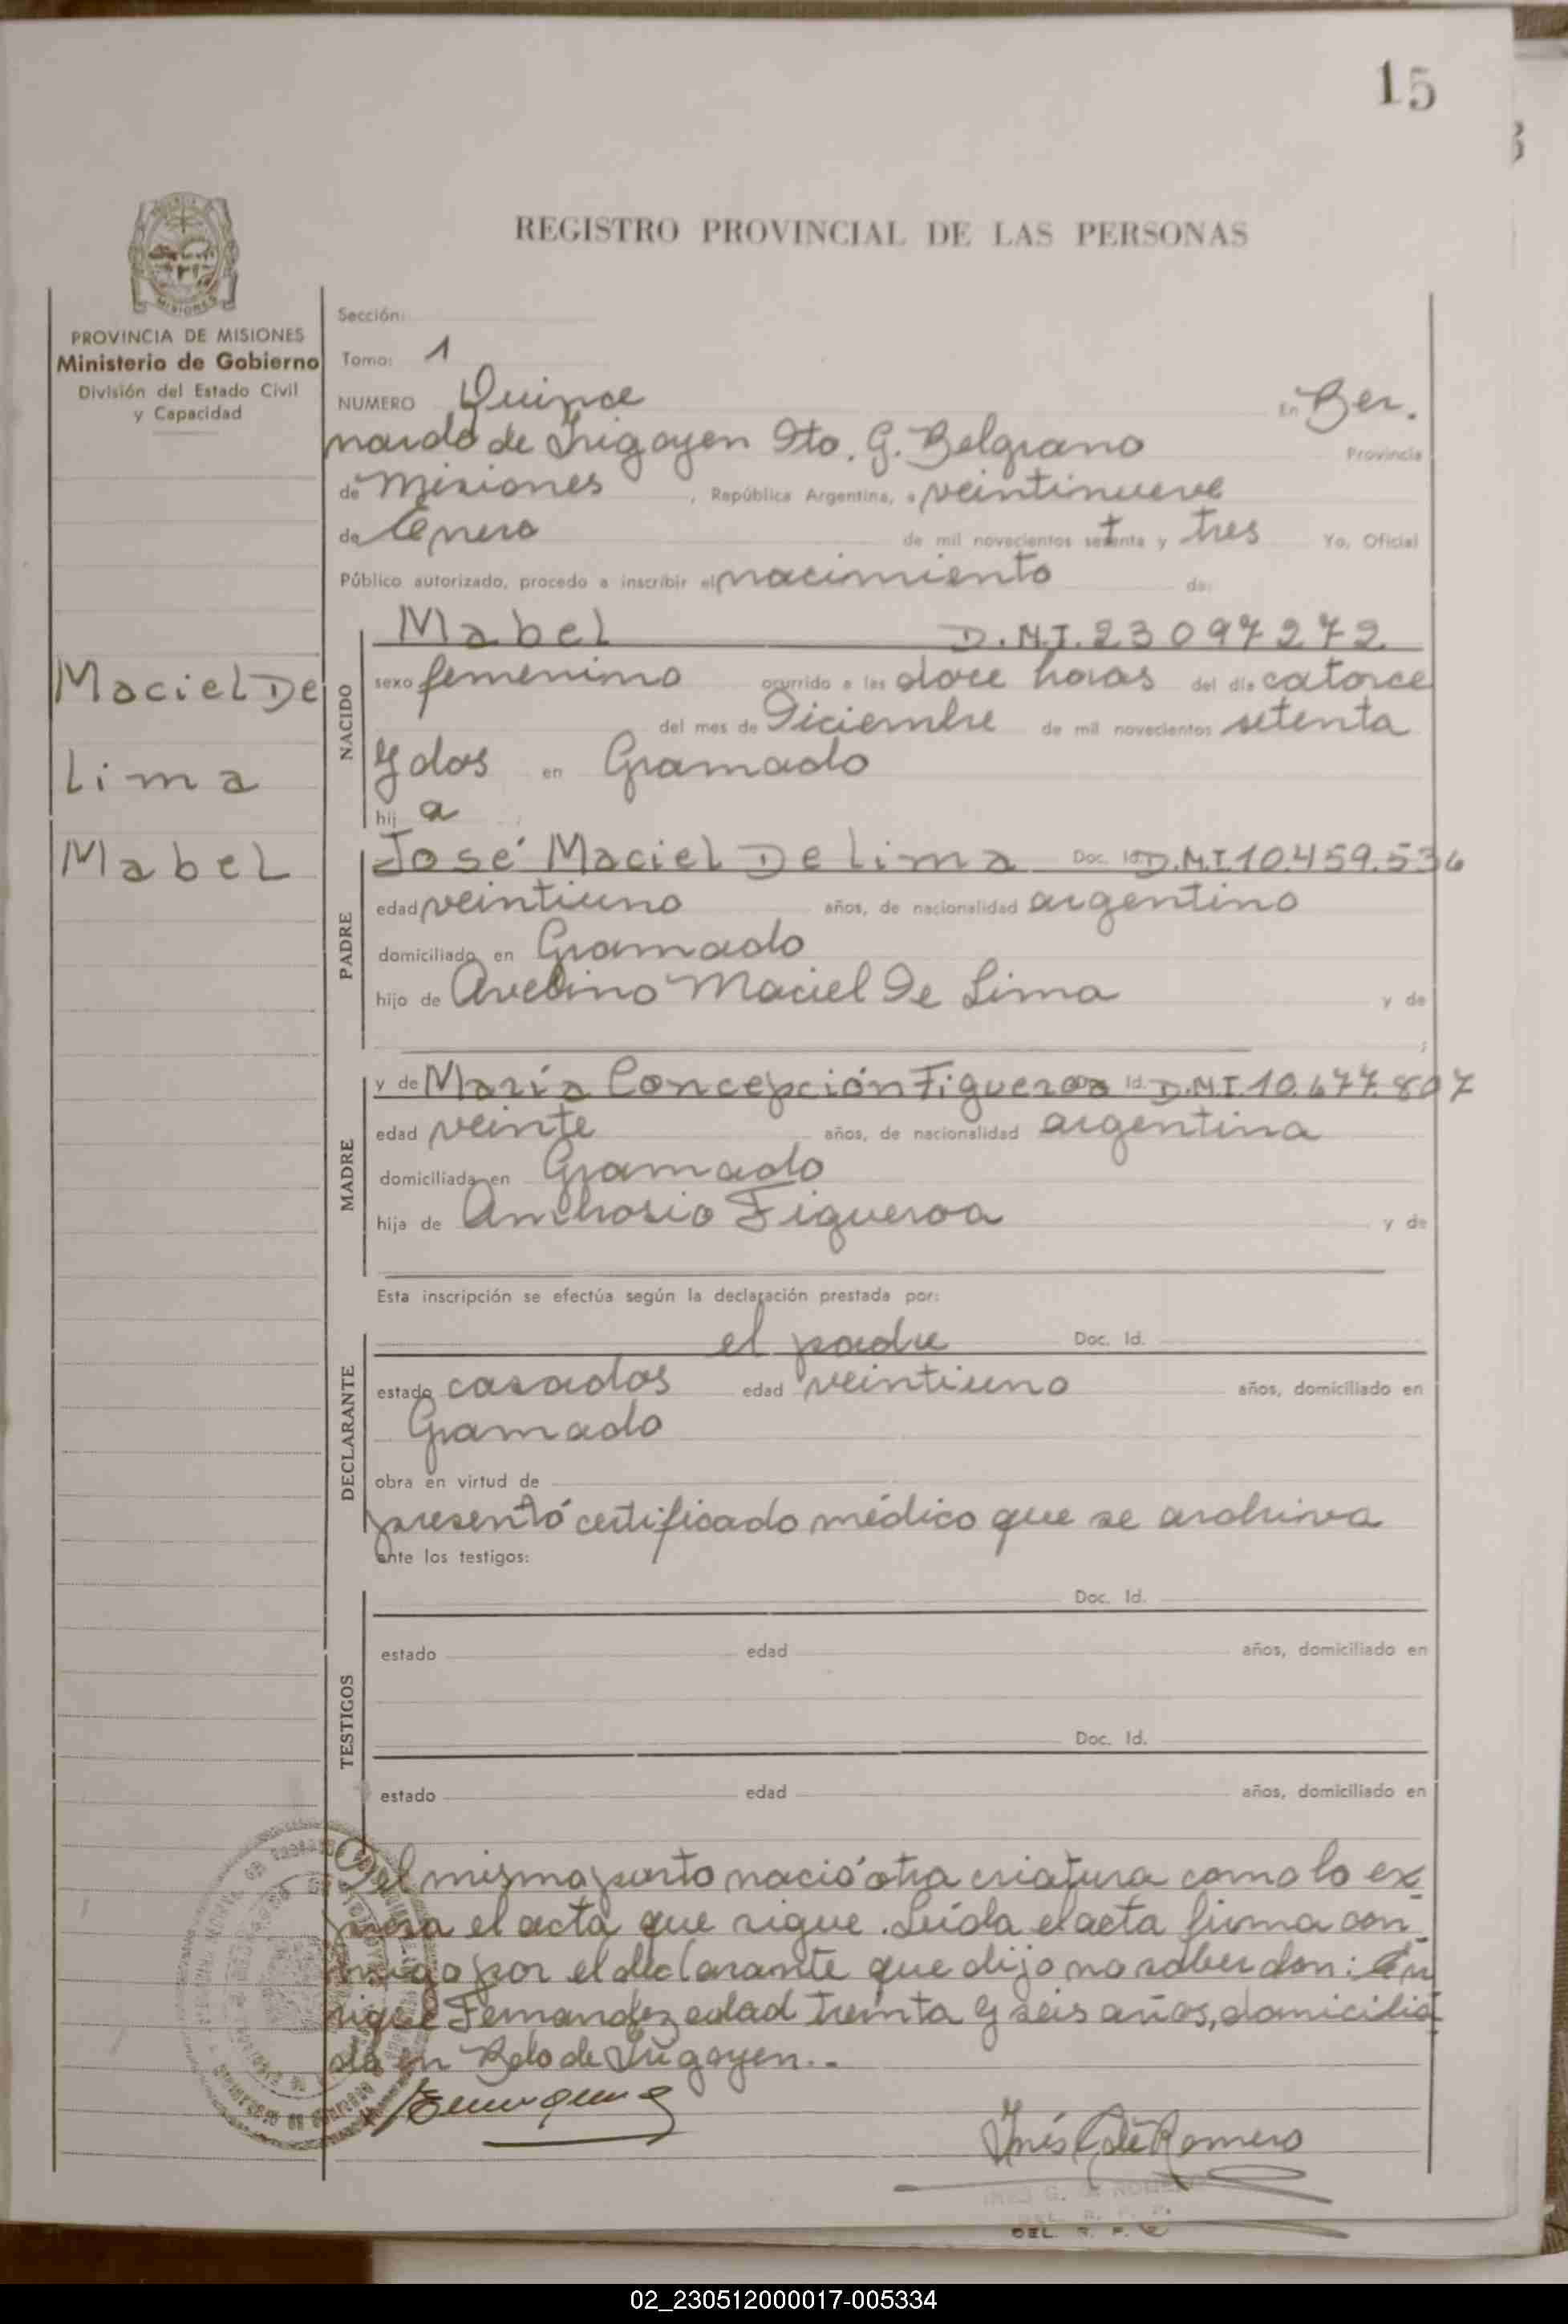 15
REGISTRO PROVINCIAL DE LAS PERSONAS
MISIONES
PROVINCIA DE MISIONES
Ministerio de Gobierno
División del Estado Civil
y Capacidad
Maciel De
Lima
Mabel
Sección:
Tomo: 1
NUMERO Quince En Ber.
nardo de Irigoyen Dto. G. Belgrano Provincia
de Misiones, República Argentina, a veintinueve
de Enero de mil novecientos setenta y tres Yo, Oficial
Público autorizado, procedo a inscribir el nacimiento de:
NACIDO
Mabel D.N.I. 23097272
sexo femenino ocurrido a las doce horas del día catorce
del mes de Diciembre de mil novecientos setenta
y dos en Gramado
hij a
PADRE
José Maciel De Lima Doc. Id. D.N.I. 10.459.536
edad veintiuno años, de nacionalidad argentino
domiciliado en Gramado
hijo de Avelino Maciel De Lima y de
MADRE
y de María Concepción Figueroa Id. D.N.I. 10.677.807
edad veinte años, de nacionalidad argentina
domiciliada en Gramado
hija de Ambrosio Figueroa y de
Esta inscripción se efectúa según la declaración prestada por:
DECLARANTE
el padre Doc. Id.
estado casados edad veintiuno años, domiciliado en
Gramado
obra en virtud de
presentó certificado médico que se archiva
ante los testigos:
TESTIGOS
Doc. Id.
estado edad años, domiciliado en
Doc. Id.
estado edad años, domiciliado en
Del mismo parto nació otra criatura como lo ex-
presa el acta que sigue. Leída el acta firma con-
migo por el declarante que dijo no saber don: En
rique Fernandez edad treinta y seis años, domicilia
do en Bdo de Irigoyen.-
Inés G de Romero
INES G. DE ROMERO
DEL. R. P. P.
DEL. R. P.
02_230512000017-005334